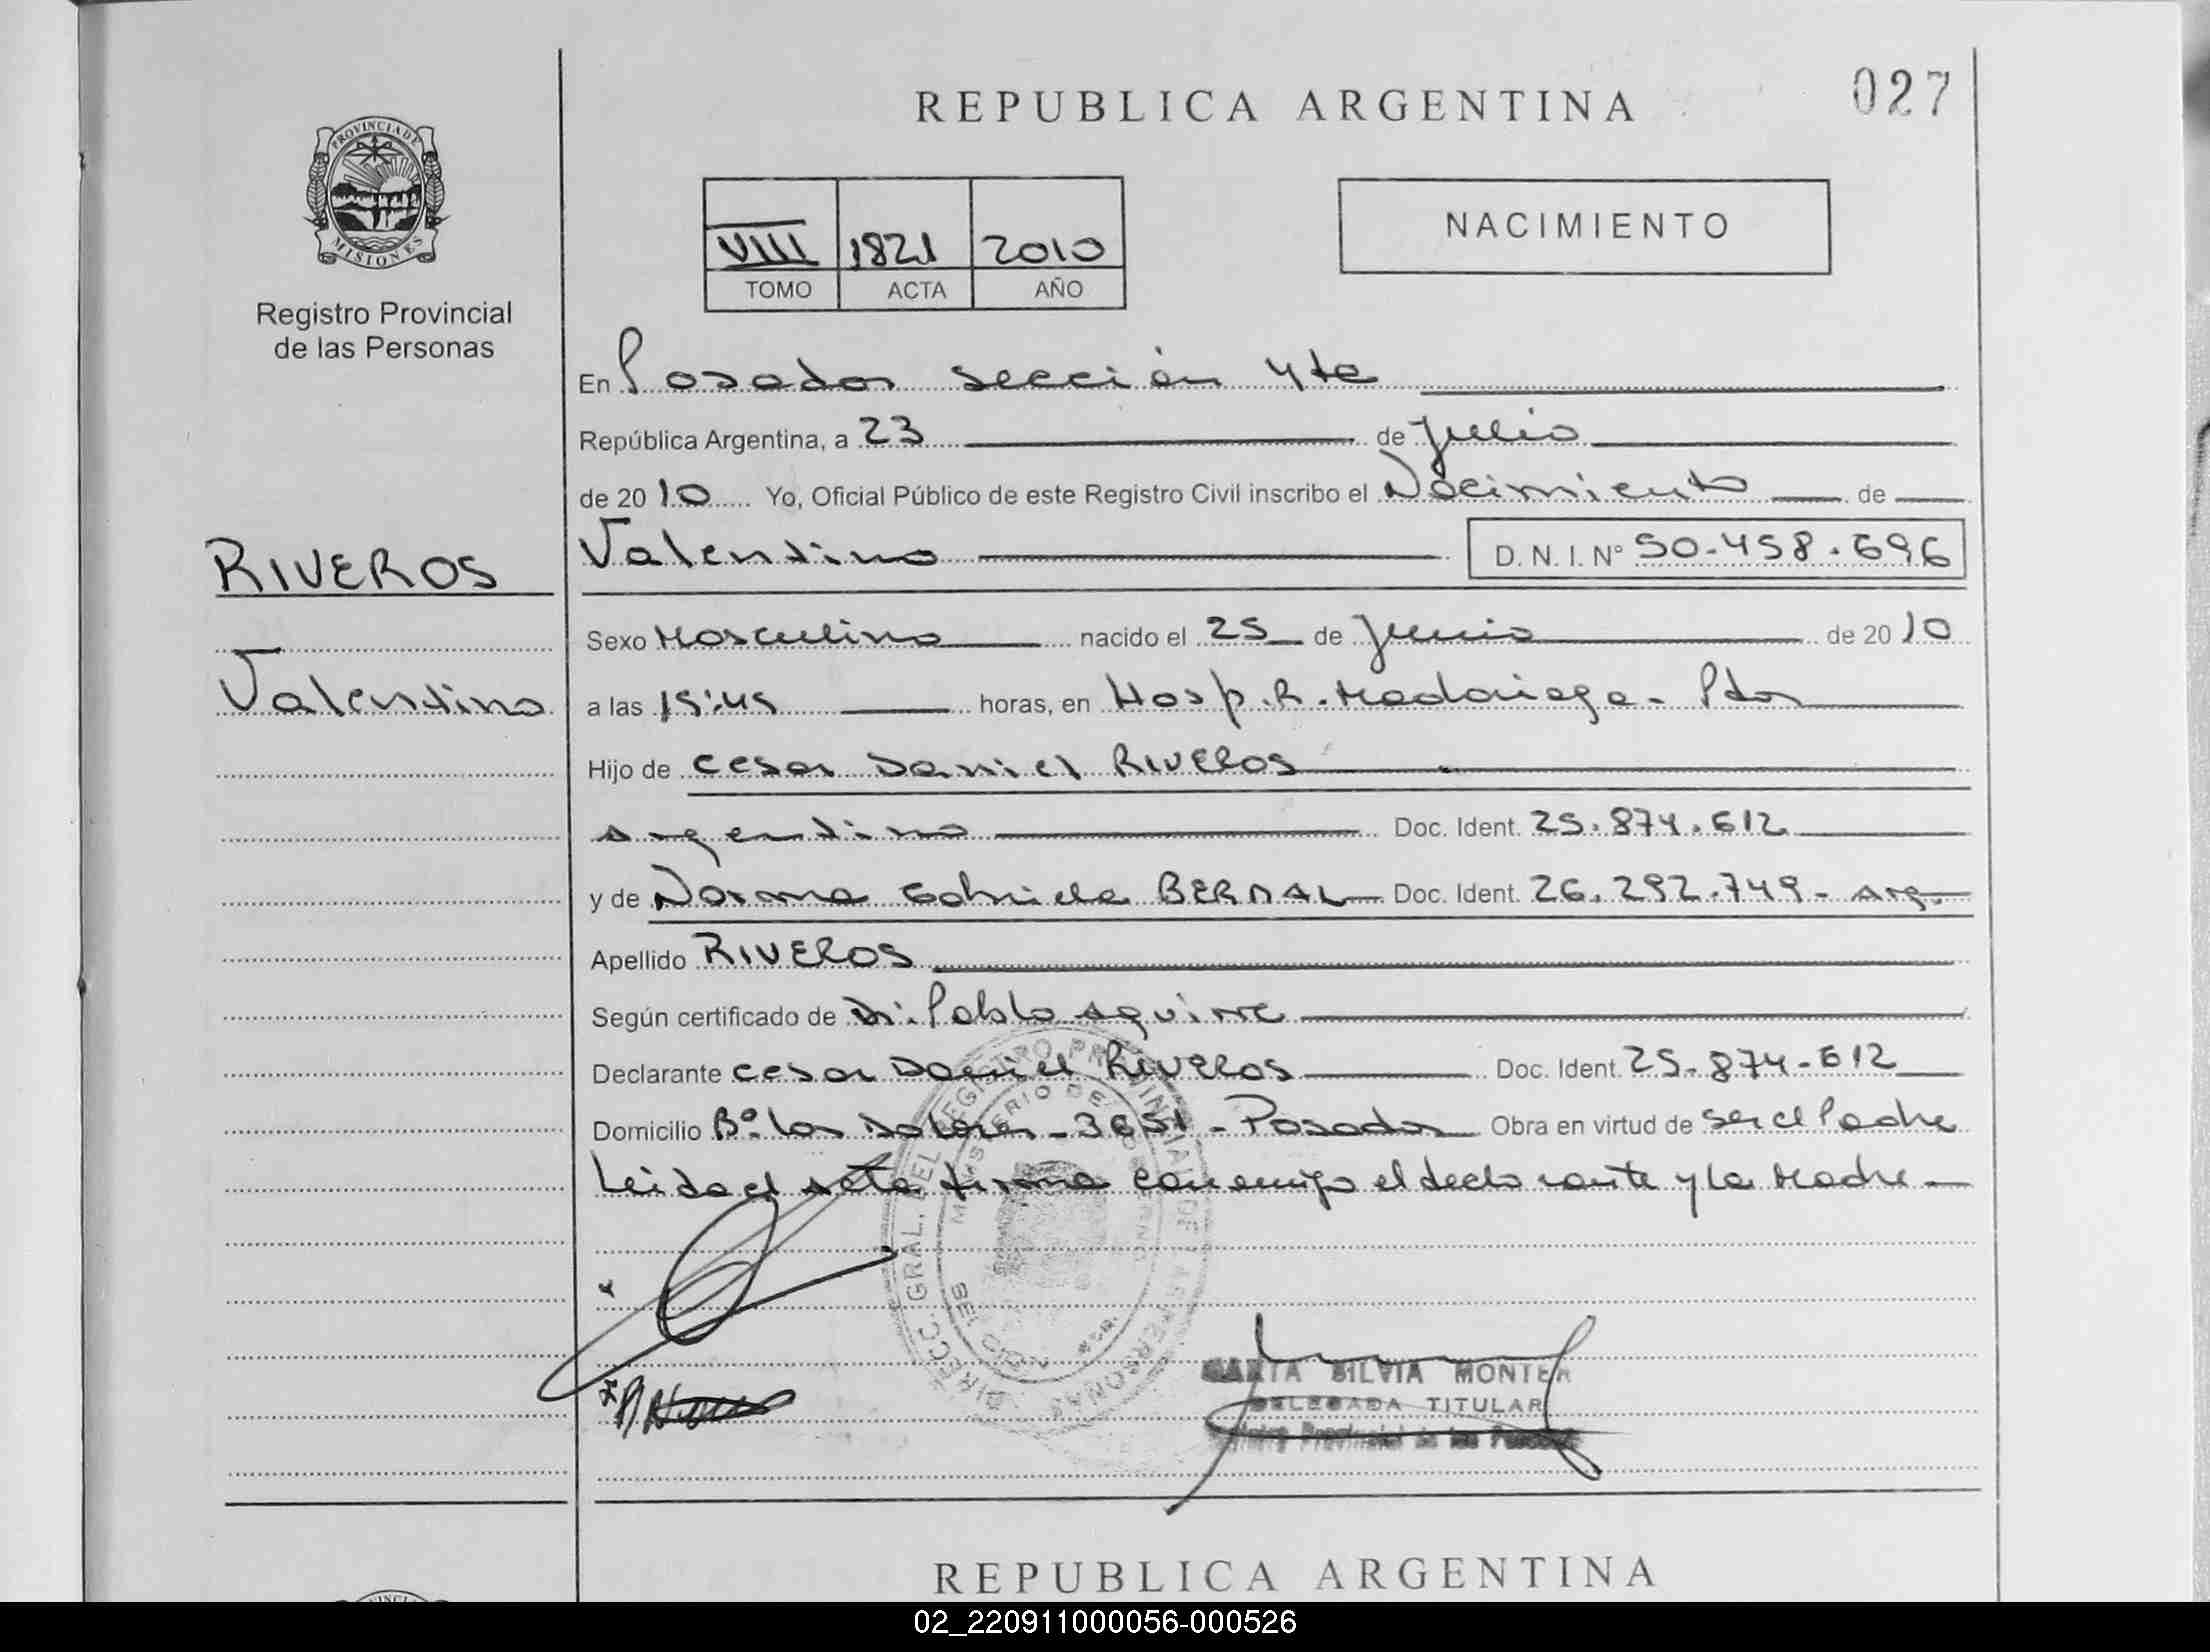 027
REPUBLICA ARGENTINA
PROVINCIA DE
MISIONES
Registro Provincial
de las Personas
VIII 1821 2010
TOMO ACTA AÑO
NACIMIENTO
En Posadas sección 4ta
República Argentina, a 23 de Julio
de 2010 Yo, Oficial Público de este Registro Civil inscribo el Nacimiento de
RIVEROS
Valentino D. N. I. Nº 50.458.696
Sexo Masculino nacido el 25 de Junio de 2010
Valentino
a las 15:45 horas, en Hosp. R. Madariaga - Pdas
Hijo de Cesar Daniel RIVEROS
argentino Doc. Ident. 25.874.612
y de Norma Gabriela BERNAL Doc. Ident. 26.292.749 - Arg.
Apellido RIVEROS
Según certificado de Dr. Pablo Aguirre
Declarante Cesar Daniel Riveros Doc. Ident. 25.874.612
Domicilio Bº. Los Dolores - 3651 - Posadas Obra en virtud de ser el Padre
Leida el acta firma conmigo el declarante y la Madre -
DIRECC. GRAL. DEL REGISTRO PROVINCIAL DE LAS PERSONAS
MINISTERIO DE GOBIERNO
SILVIA MONTER
DELEGADA TITULAR
Registro Provincial de las Personas
REPUBLICA ARGENTINA
02_220911000056-000526